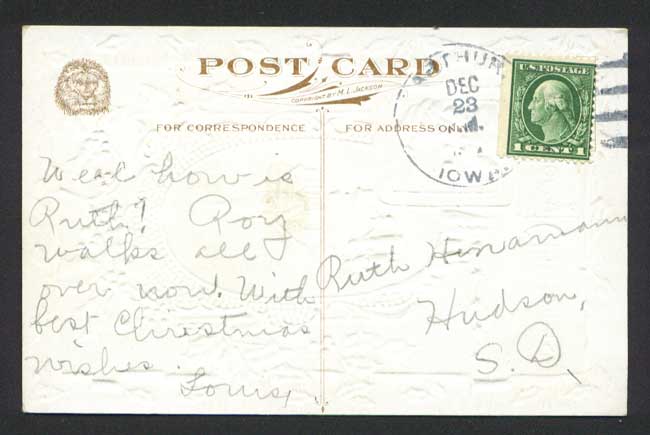 POST CARD
COPYRIGHT BY M. L. JACKSON
FOR CORRESPONDENCE
FOR ADDRESS ONLY
DEC
23
IOWA
U.S. POSTAGE
1 CENT 1
Well how is
Ruth? Roy
walks all
over now. With
best Christmas
wishes.
Ruth
Hudson,
S. D.